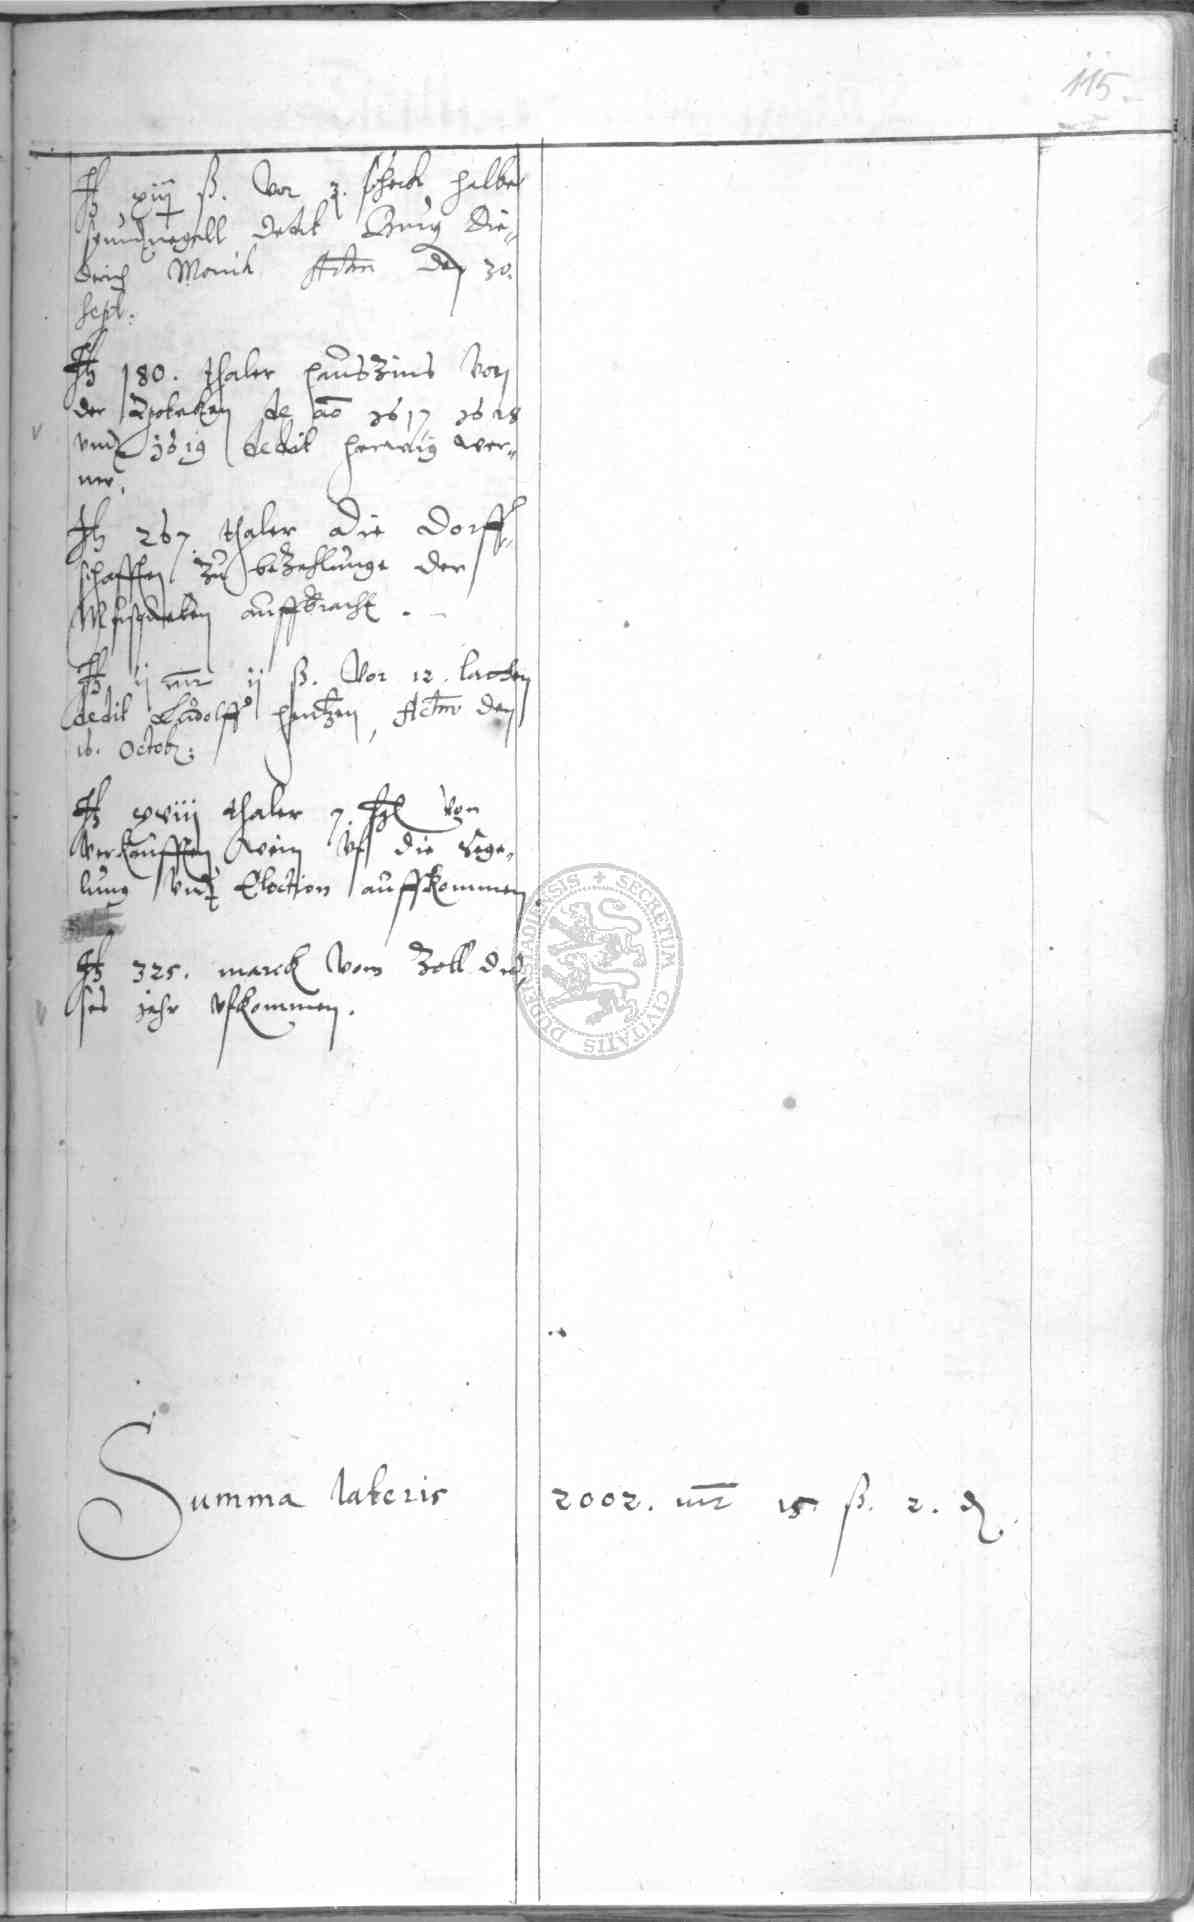 115.
It xiij ß. vor 3. schock halbe
spundnegell dedit Burg Die-
derich Monich Actum den 30.
Sept:
It 180. thaler hauszins von
der Apoteken de ao 1617 1618
vnd 1619 dedit Herwig Wer-
ner.
It 267 thaler die Dorff-
schafften zu bezahlunge der
Musqueten auffbracht.
It ij mr ij ß. vor 12. lachen
dedit Ludolff Hentzen, Actum den
16. Octob:
It xviij thaler 7. von
verkaufften wein vf die
vnd Election auffkommen
It 325. marck vom Zoll die-
ses jahr vfkommen.
Summa lateris 2002. mr 15 ß. 2. d
SECRETUM CIVITATIS DUDERSTADIENSIS